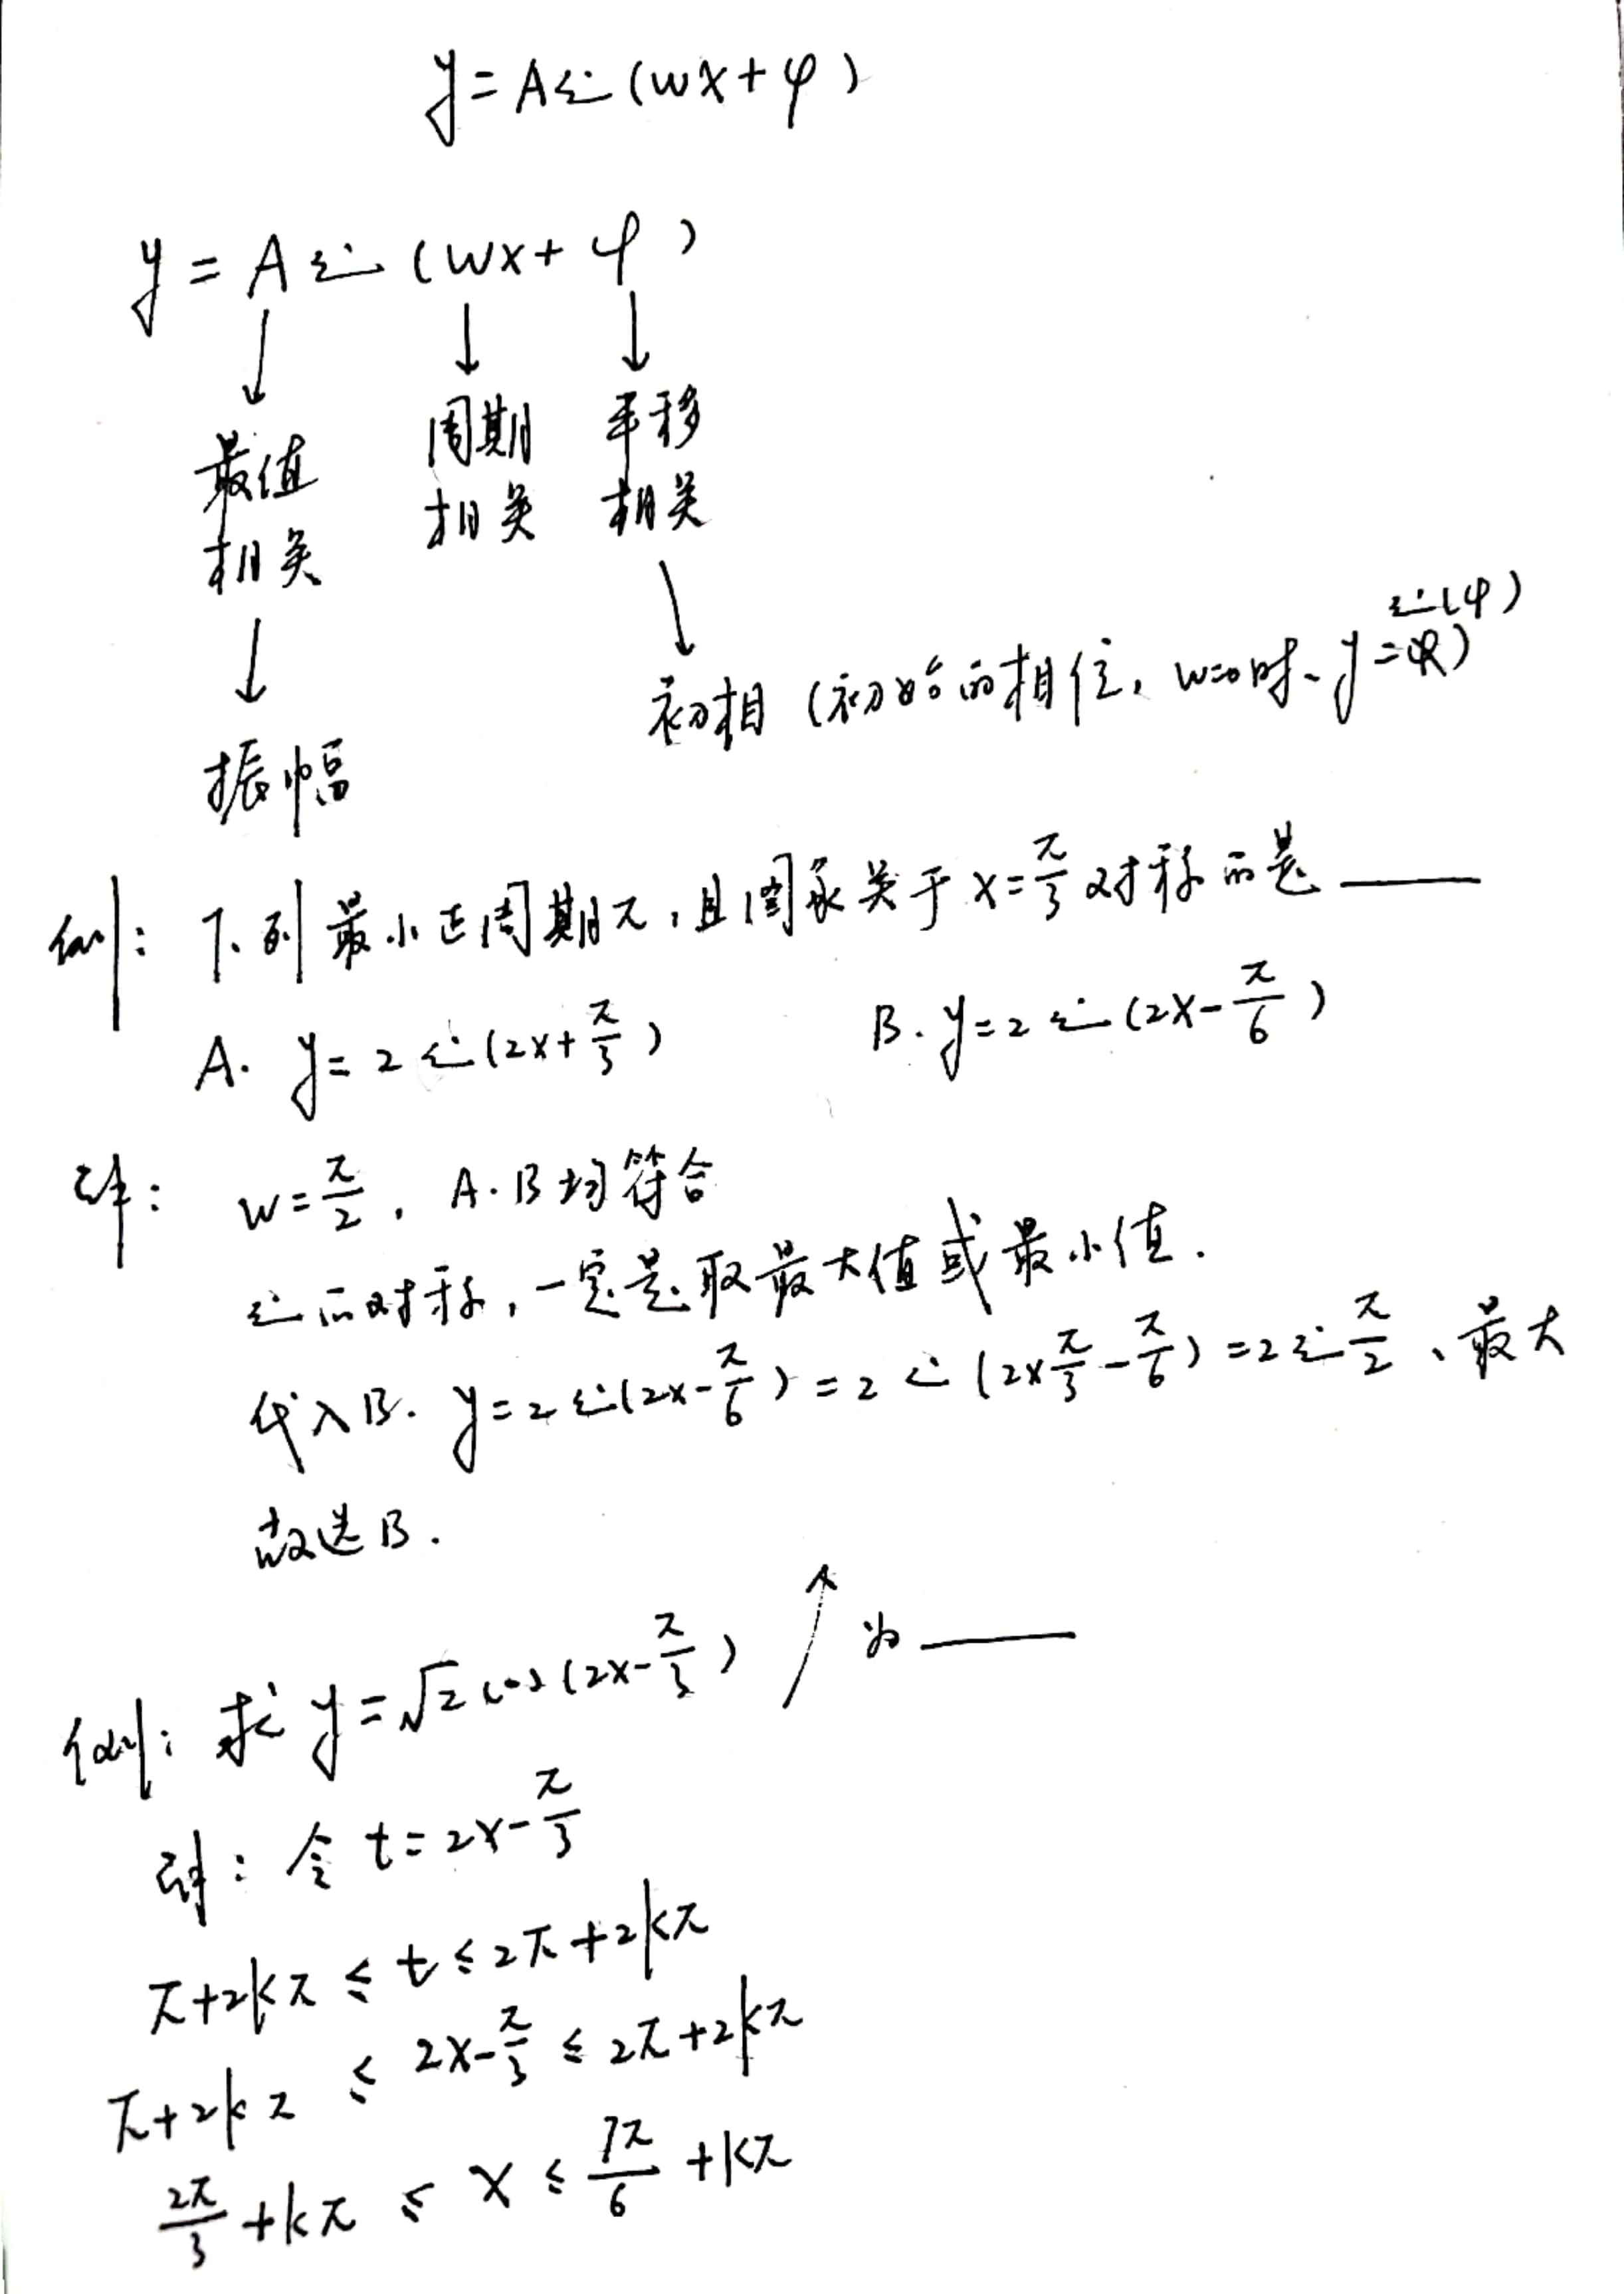 y=Asin(wx+φ)
y=Asin(wx+φ)
↓ ↓ ↓
最值相关 周期相关 平移相关
↓ ↘
振幅 初相(初始的相位, w=0时、y=sin(φ)
例: 下列最小正周期π,且图象关于x=π/3对称的是____
A. y=2sin(2x+π/3) B. y=2sin(2x-π/6)
解: w=π/2, A.B均符合
sin的对称,一定是取最大值或最小值.
代入B. y=2sin(2x-π/6)=2sin(2×π/3-π/6)=2sinπ/2、最大
故选B.
例: 求y=√2cos(2x-π/3)↗为____
解: 令t=2x-π/3
π+2kπ≤t≤2π+2kπ
π+2kπ≤2x-π/3≤2π+2kπ
2π/3+kπ≤x≤7π/6+kπ